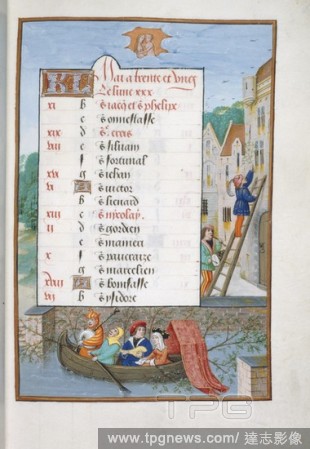 KL Mai a trente et ung
Le lune xxx
xi b s iacq et s phelix
c s onnestasse
xix d ste crois
viii e s siluain
f s fortunat
xvi g s iehan
v A s victor
b s lienard
xiii c s nycolay
ii d s gordien
e s mamert
x f s pancraize
g s marcelien
xviii A s boniface
vii b s ysidore
TPG
www.tpgnews.com/ 達志影像